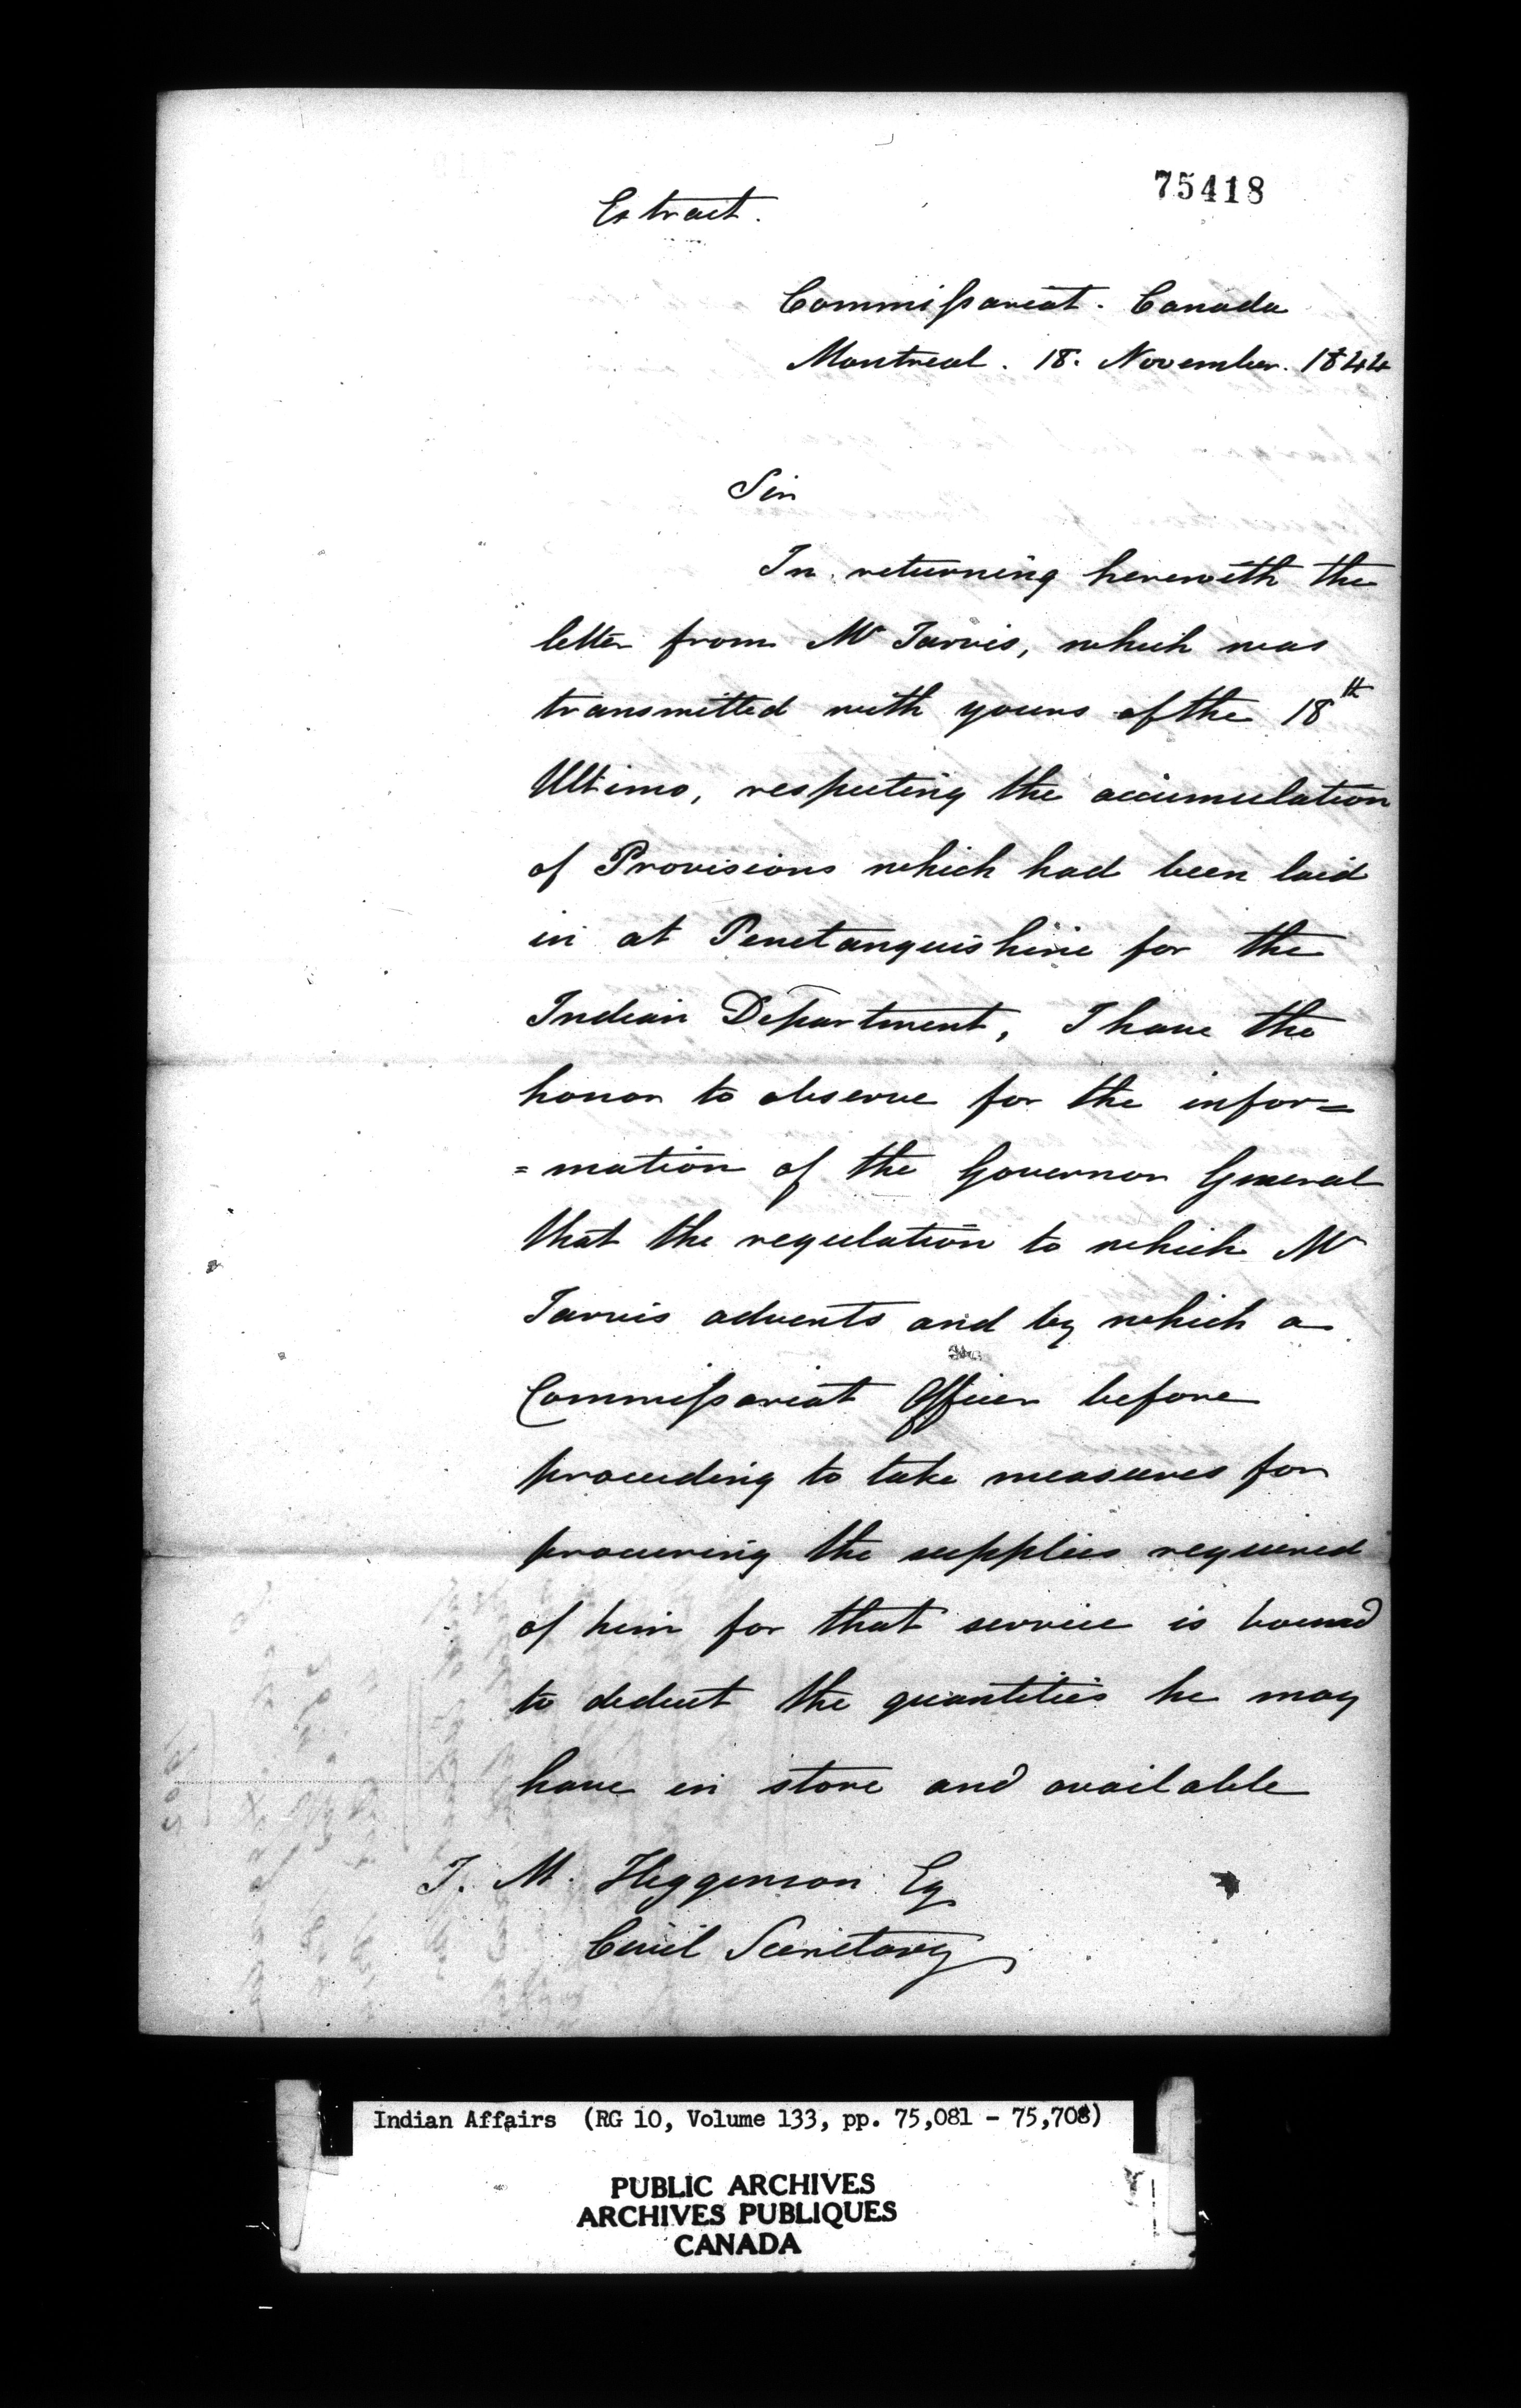 75418
Extract.
Commissariat. Canada
Montreal. 18. November. 1844
Sir
In returning herewith the
letter from Mr Jarvis, which was
transmitted with yours of the 18th
Ultimo, respecting the accumulation
of Provisions which had been laid
in at Penetanguishine for the
Indian Department, I have the
honor to observe for the infor=
=mation of the Governor General
that the regulation to which Mr
Jarvis adverts and by which a
Commissariat Officer before
proceeding to take measures for
procuring the supplies required
of him for that service is bound
to deduct the quantities he may
have in store and available
J. M. Higginson Esq
Civil Secretary
Indian Affairs (RG 10, Volume 133, pp. 75,081 - 75,708)
PUBLIC ARCHIVES
ARCHIVES PUBLIQUES
CANADA